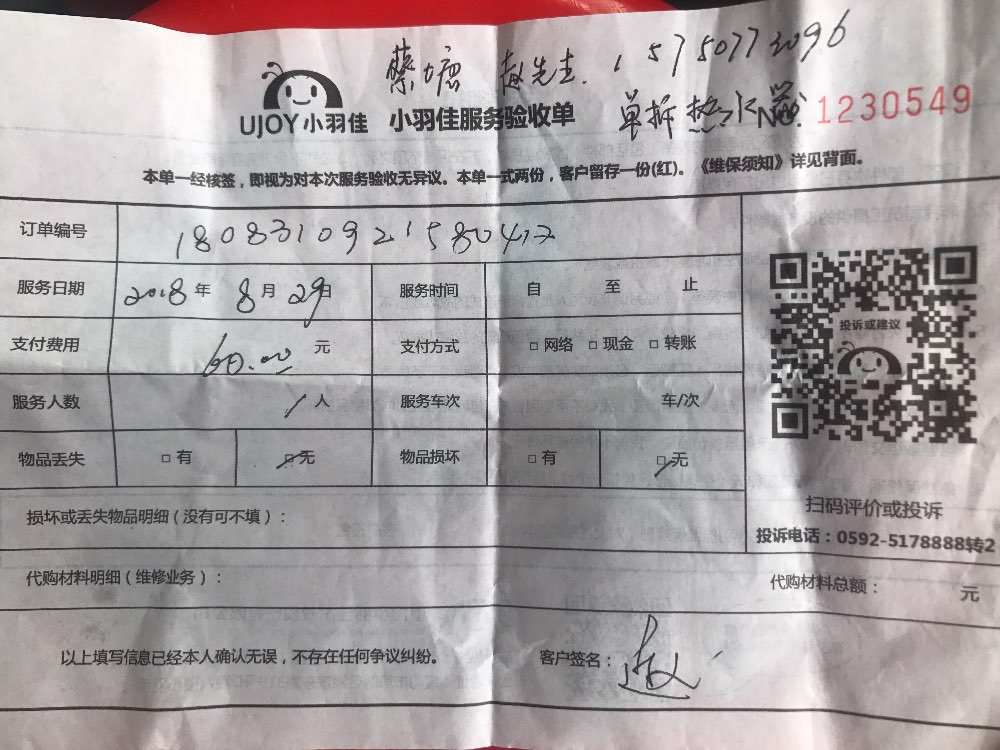 蔡塘 赵先生. 15750773096
UJOY小羽佳 小羽佳服务验收单 单拆热水器 No 1230549
本单一经核签，即视为对本次服务验收无异议。本单一式两份，客户留存一份(红)。《维保须知》详见背面。
订单编号 18083109215804
服务日期 2018年 8月 29日 服务时间 自 至 止
支付费用 60.00 元 支付方式 □网络 □现金 □转账
投诉或建议
服务人数 1 人 服务车次 车/次
物品丢失 □有 □无 物品损坏 □有 □无
损坏或丢失物品明细（没有可不填）：
扫码评价或投诉
投诉电话：0592-5178888转2
代购材料明细（维修业务）： 代购材料总额： 元
以上填写信息已经本人确认无误，不存在任何争议纠纷。 客户签名：